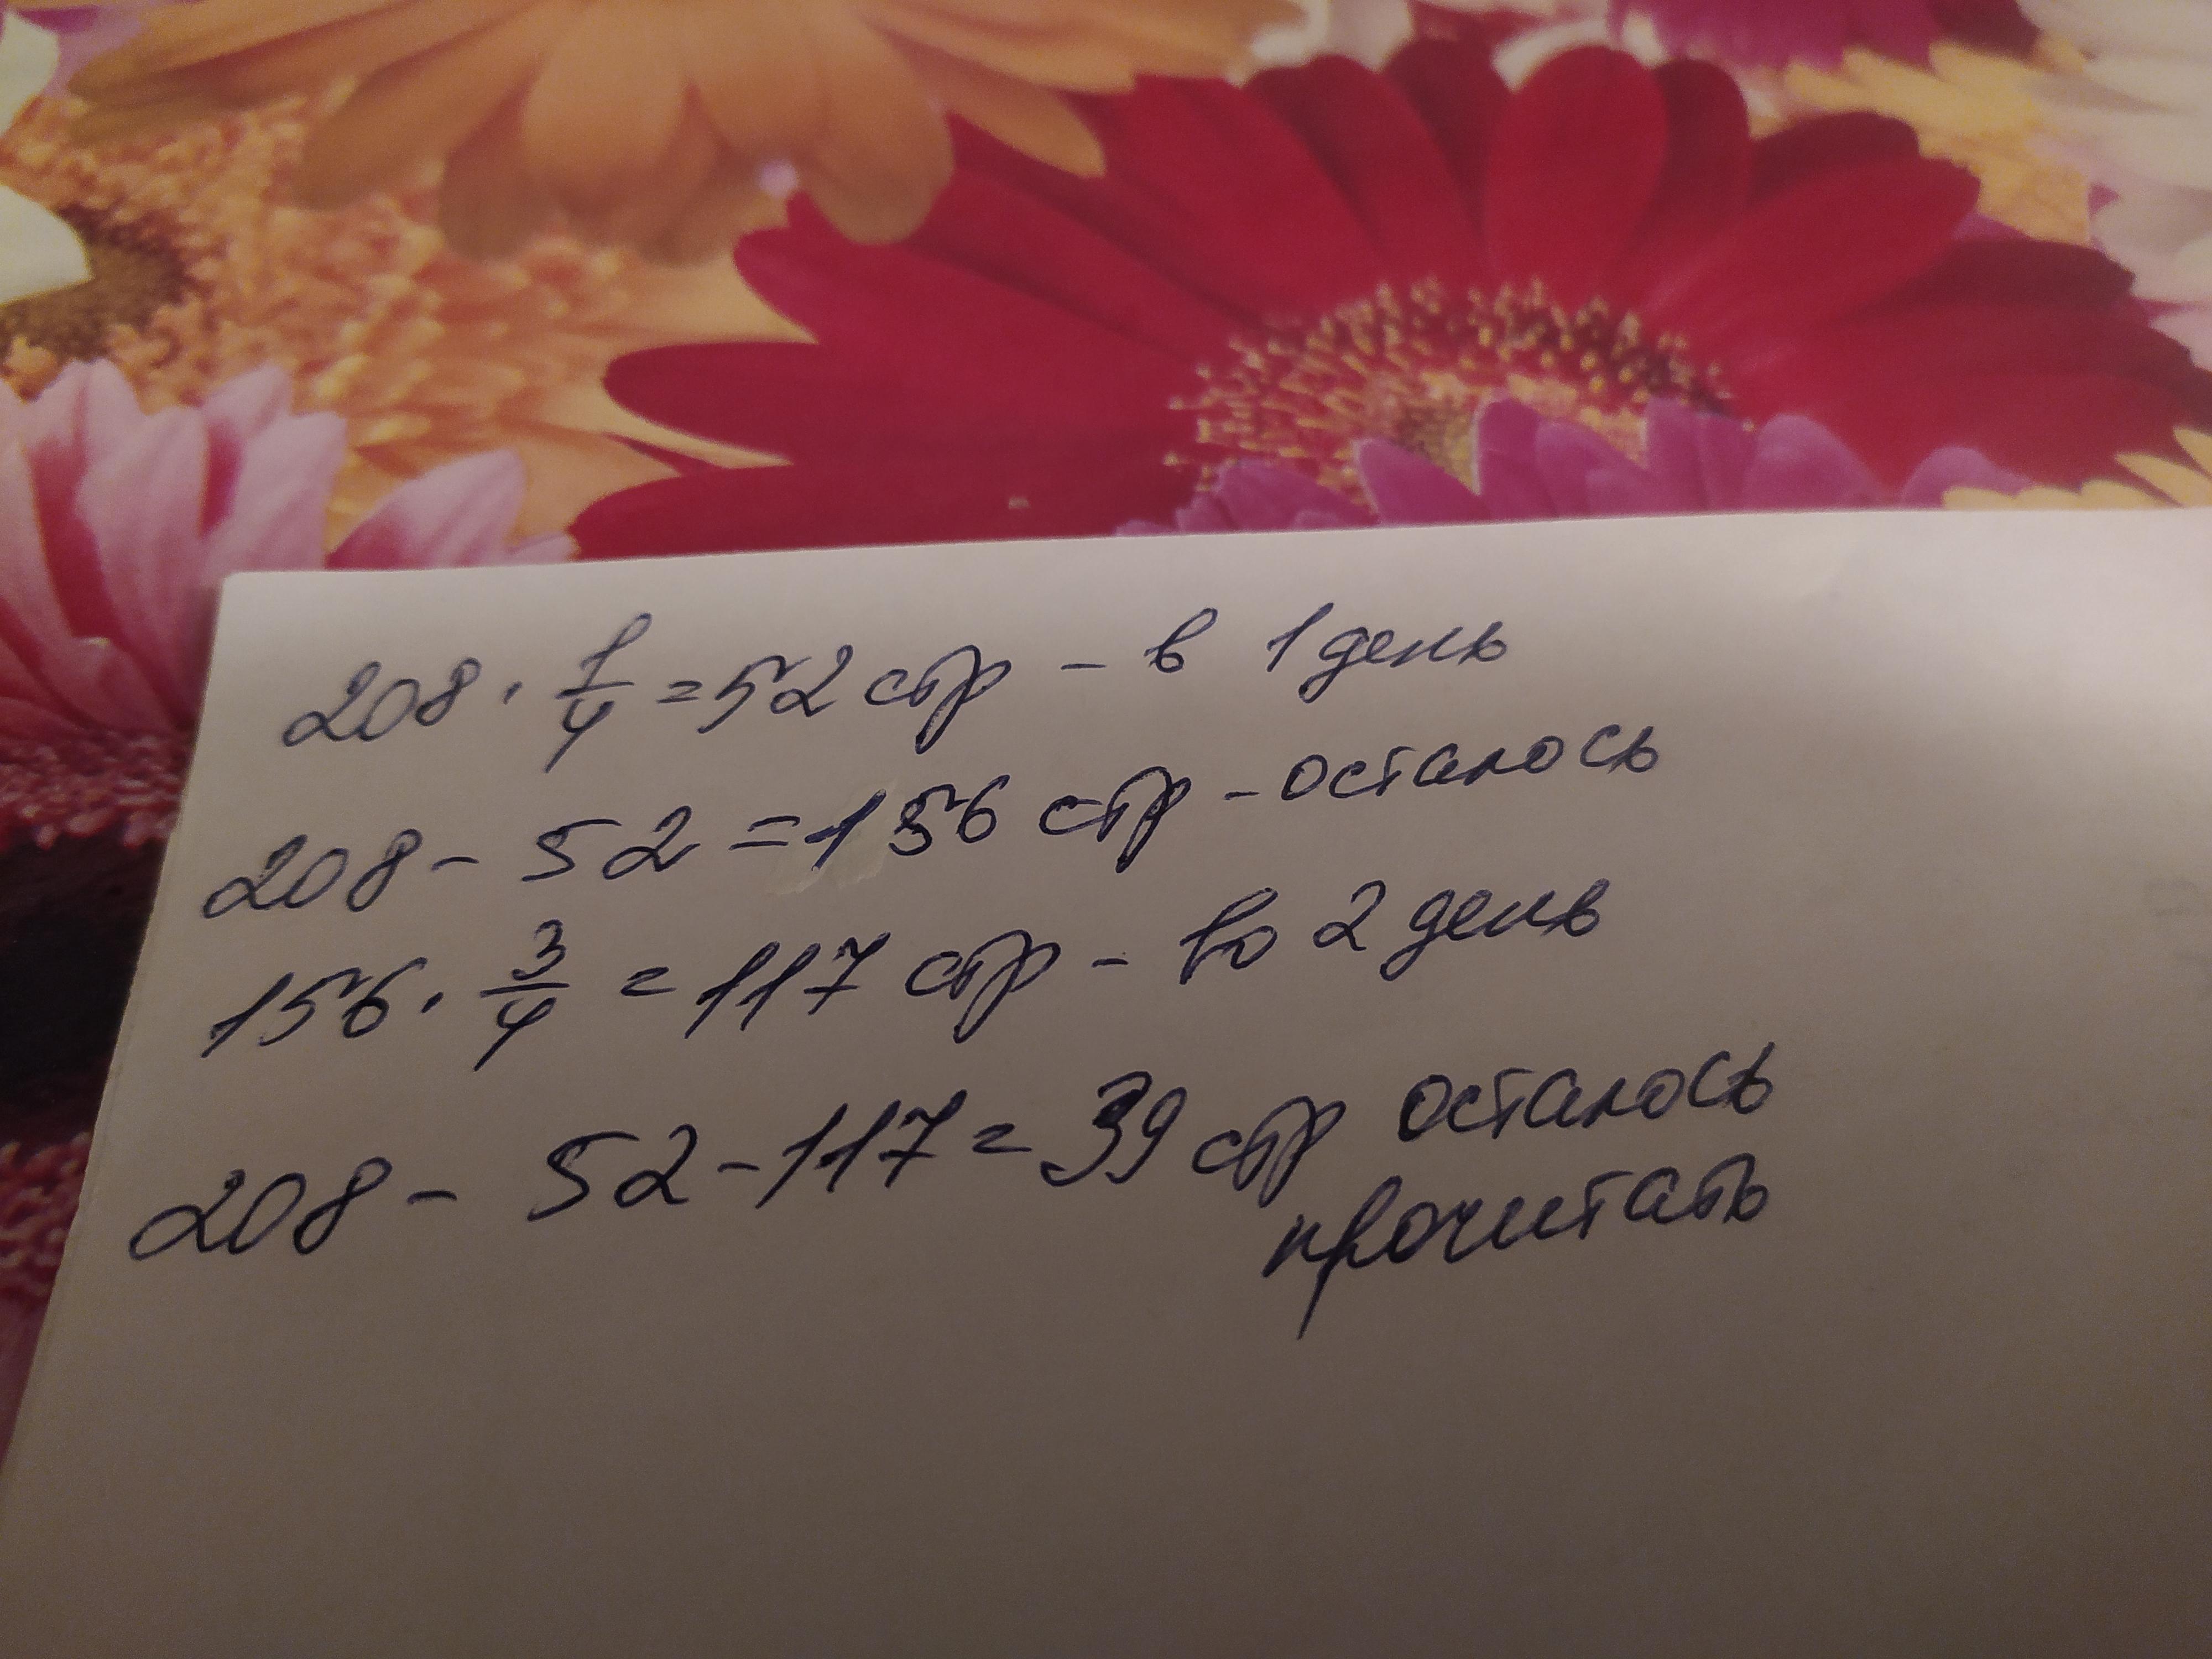 208 · 1/4 = 52 стр – в 1 день
208 – 52 = 156 стр – осталось
156 · 3/4 = 117 стр – во 2 день
208 – 52 – 117 = 39 стр осталось
прочитать